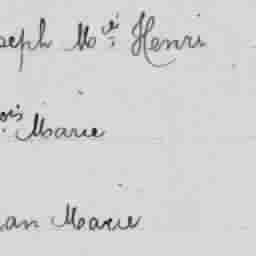 seph Mie Henri
ois Marie
an Marie